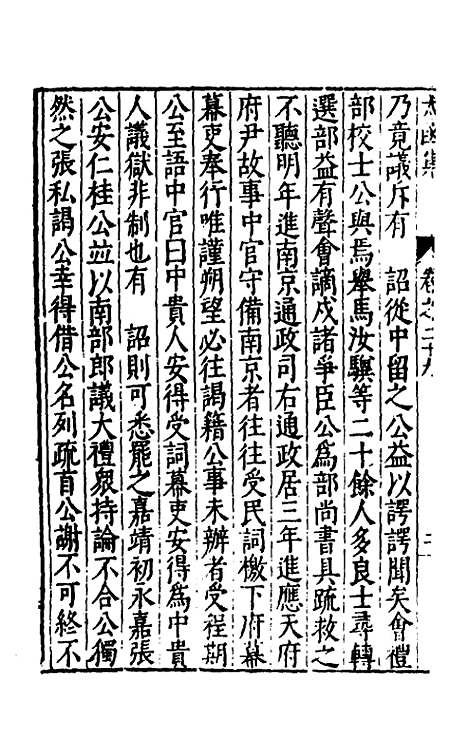 太函集 卷之二十九 二
乃竟議斥有 詔從中留之公益以諤諤聞矣會禮
部校士公與焉舉馬汝驥等二十餘人多良士尋轉
選部益有聲會謫戍諸爭臣公為部尚書具疏救之
不聽明年進南京通政司右通政居三年進應天府
府尹故事中官守備南京者往往受民詞檄下府幕
幕吏奉行唯謹朔望必往謁籍公事未辦者受程期
公至語中官曰中貴人安得受詞幕吏安得為中貴
人議獄非制也有 詔則可悉罷之嘉靖初永嘉張
公安仁桂公並以南部郎議大禮衆持論不合公獨
然之張私謁公幸得借公名列疏首公謝不可終不